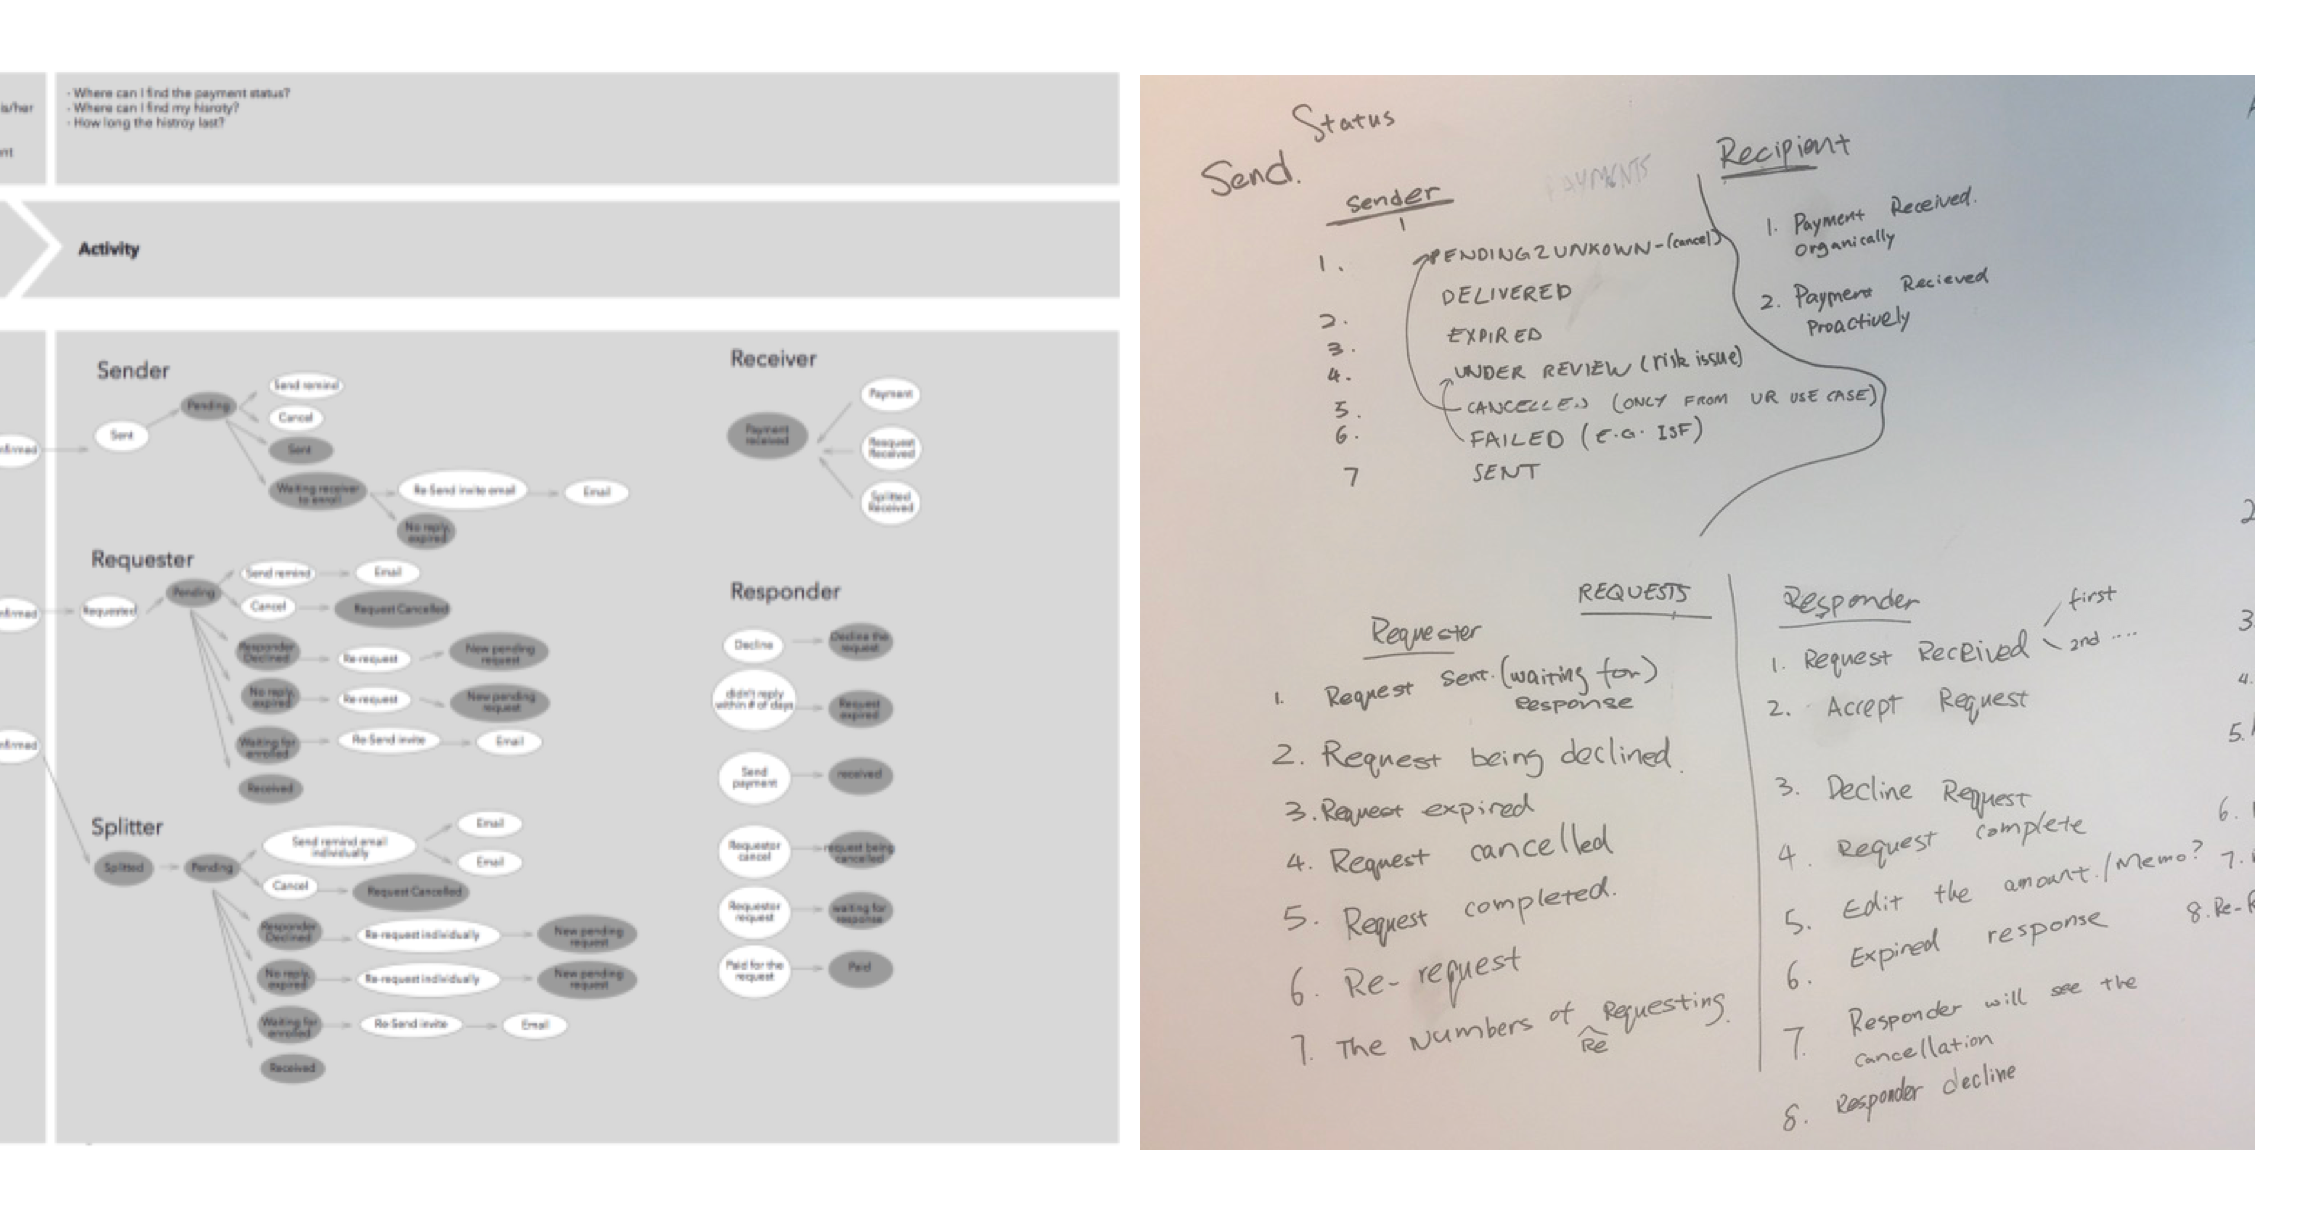 is/her
nt
- Where can I find the payment status?
- Where can I find my hisroty?
- How long the histroy last?
Activity
nfirmed
nfirmed
nfirmed
Sender
Sent
Pending
Send remind
Cancel
Sent
Waiting receiver
to enroll
Re-Send invite email
Email
No reply
expired
Requester
Requested
Pending
Send remind
Email
Cancel
Request Cancelled
Responder
Declined
Re-request
New pending
request
No reply
expired
Re-request
New pending
request
Waiting for
enrolled
Re-Send invite
Email
Received
Splitter
Splitted
Pending
Send remind email
individually
Email
Email
Cancel
Request Cancelled
Responder
Declined
Re-request individually
New pending
request
No reply
expired
Re-request individually
New pending
request
Waiting for
enrolled
Re-Send invite
Email
Received
Receiver
Payment
received
Payment
Received
Splitted
Received
Responder
Decline
Decline the
request
didn't reply
within # of days
Request
expired
Send
payment
received
Requestor
cancel
request being
cancelled
Requestor
request
waiting for
response
Paid for the
request
Paid
Status
Send.
PAYMENTS
Sender
1. PENDING 2 UNKOWN - (cancel)
DELIVERED
2.
EXPIRED
3.
4. UNDER REVIEW (risk issue)
5. CANCELLED (ONLY FROM UR USE CASE)
6. FAILED (E.G. ISF)
7 SENT
Recipient
1. Payment Received.
organically
2. Payment Recieved
Proactively
REQUESTS
Requester
1. Request Sent. (waiting for)
response
2. Request being declined.
3. Request expired
4. Request cancelled
5. Request completed.
6. Re-request
7. The Numbers of Requesting
Re
Responder
first
2nd ....
1. Request Received
2. Accept Request
3. Decline Request
4. Request complete
5. Edit the amount./Memo?
6. Expired response
7. Responder will see the
cancellation
8. Responder decline
2
3.
4.
5.
6.
7.
8. Re-